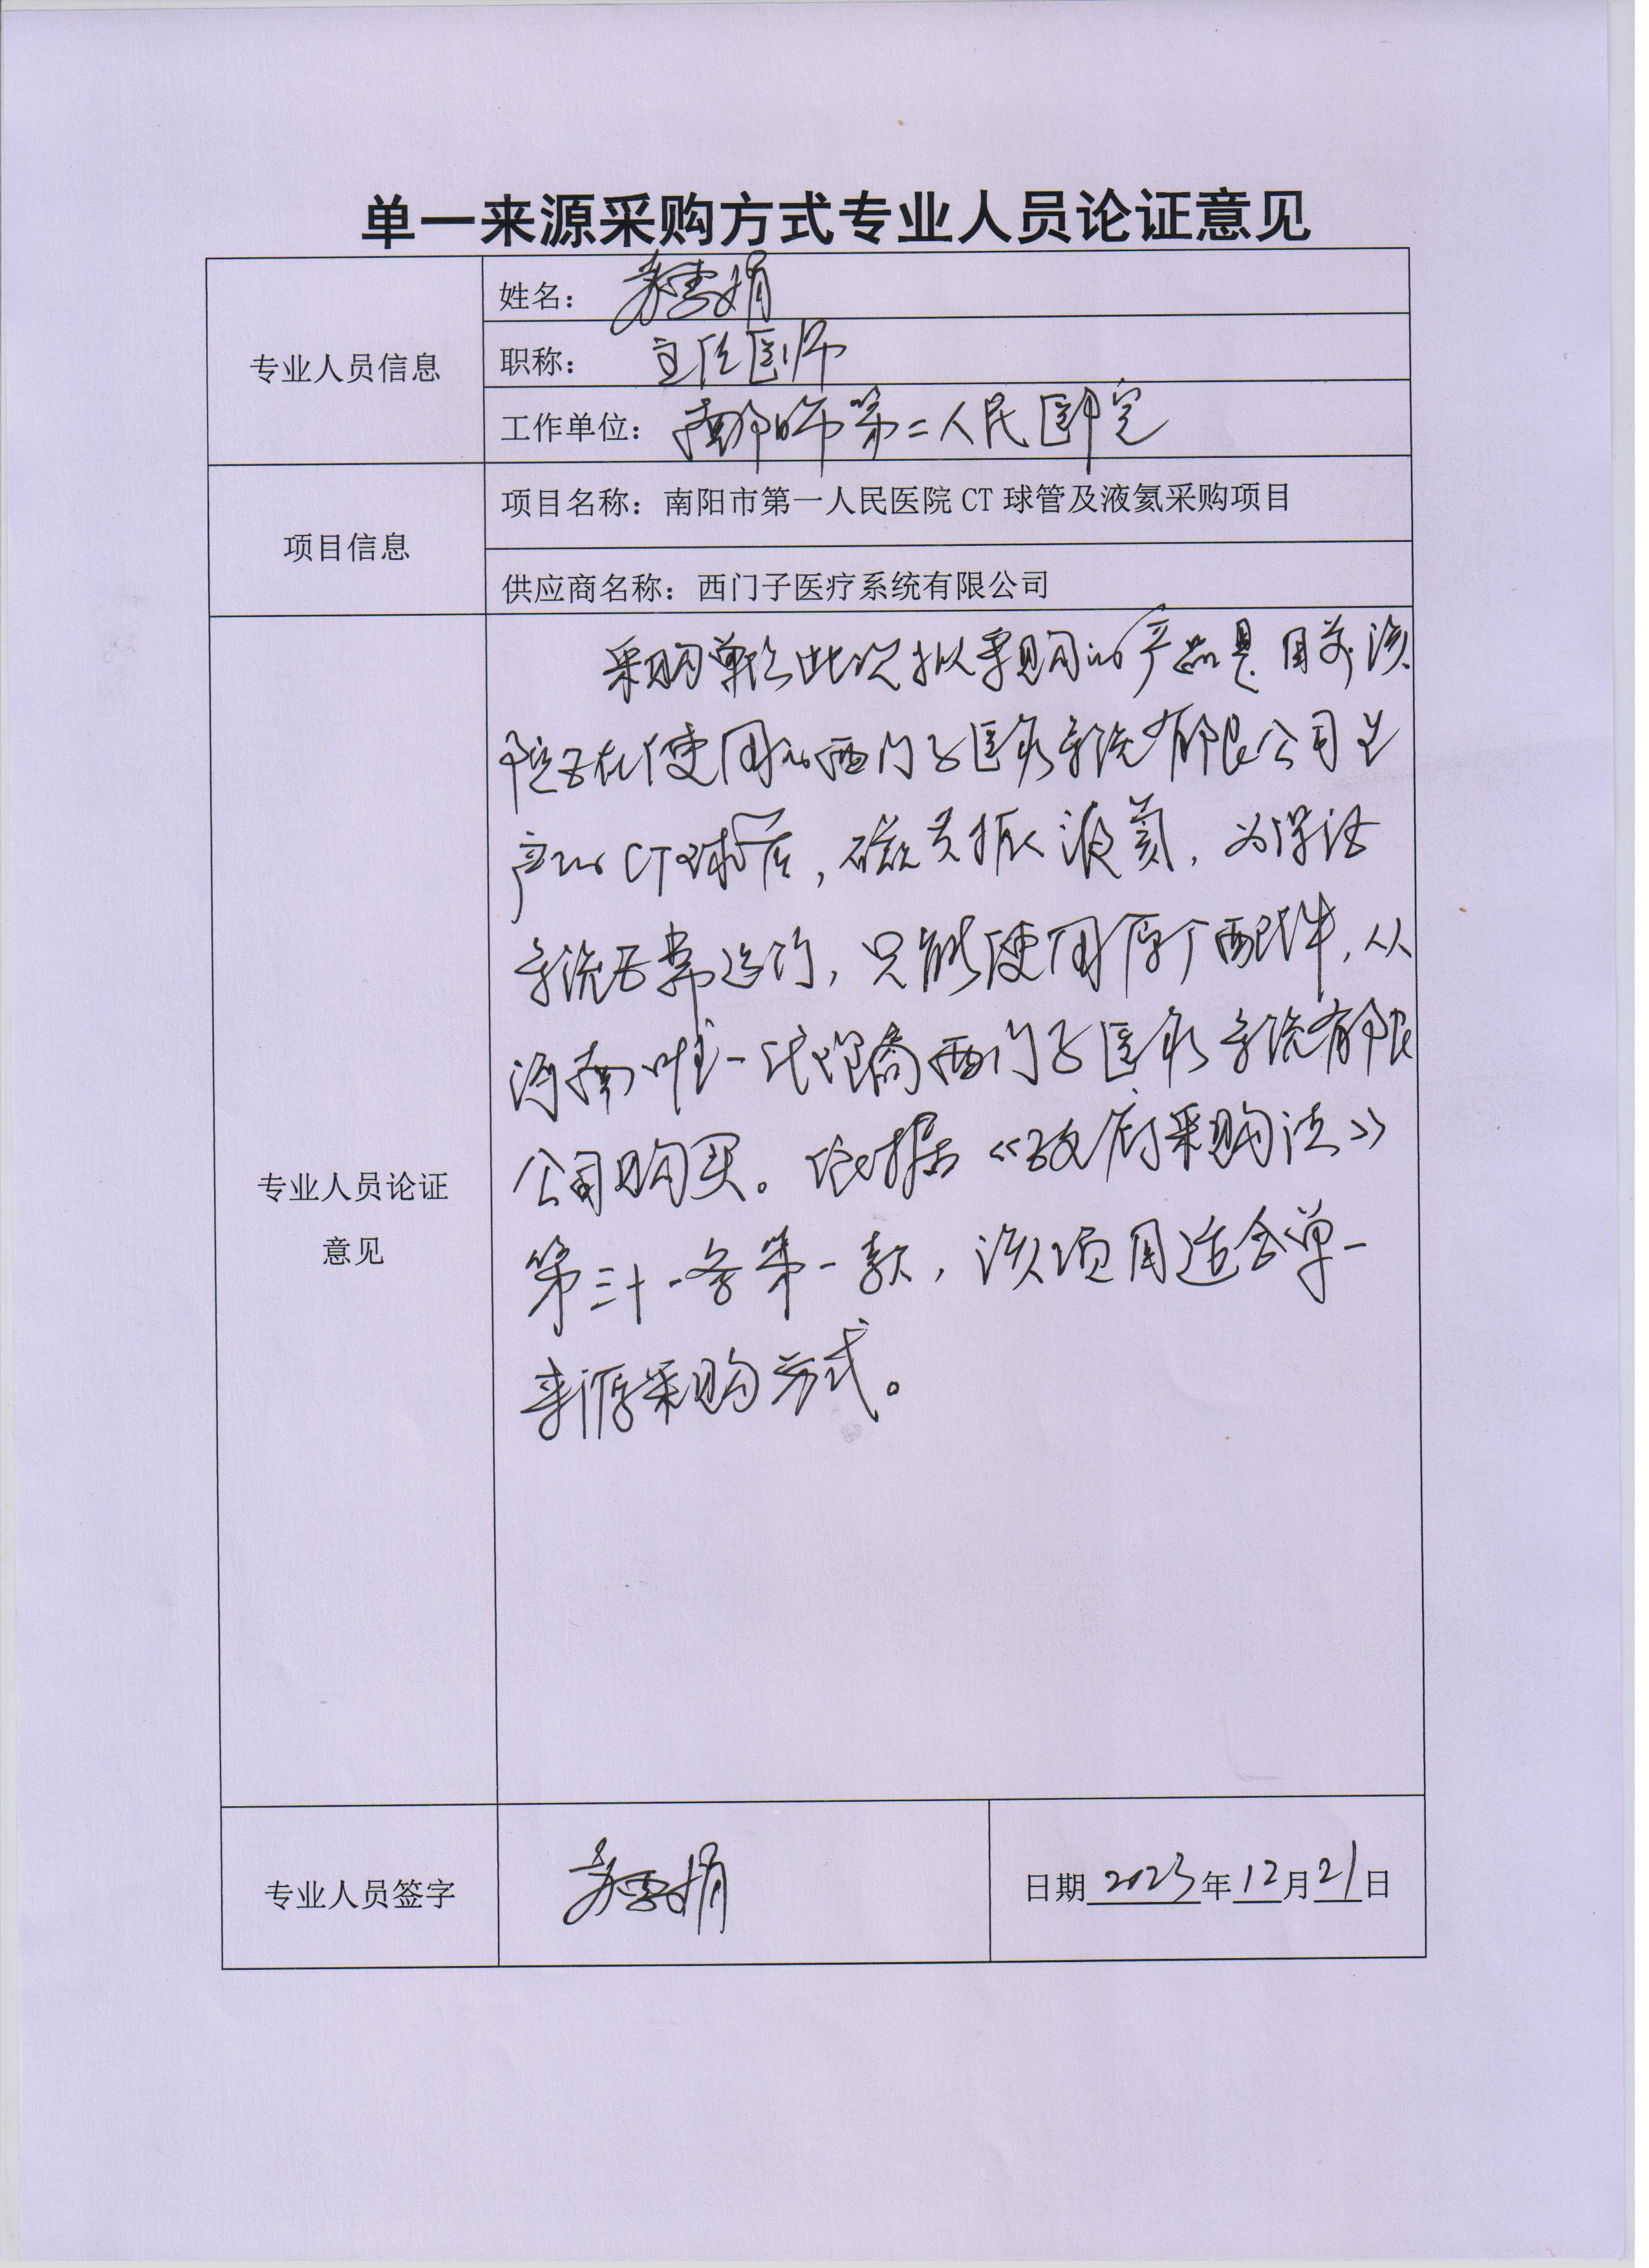 单一来源采购方式专业人员论证意见
专业人员信息
姓名：
职称：主任医师
工作单位：南阳市第二人民医院
项目信息
项目名称：南阳市第一人民医院 CT 球管及液氦采购项目
供应商名称：西门子医疗系统有限公司
专业人员论证
意见
采购单位此次拟采购的产品是目前该
院正在使用的西门子医疗系统有限公司生
产的CT球管，磁共振液氦，为保证
系统正常运行，只能使用原厂配件，从
河南唯一代理商西门子医疗系统有限
公司购买。依据《政府采购法》
第三十一条第一款，该项目适合单一
来源采购方式。
专业人员签字
日期2023年12月21日